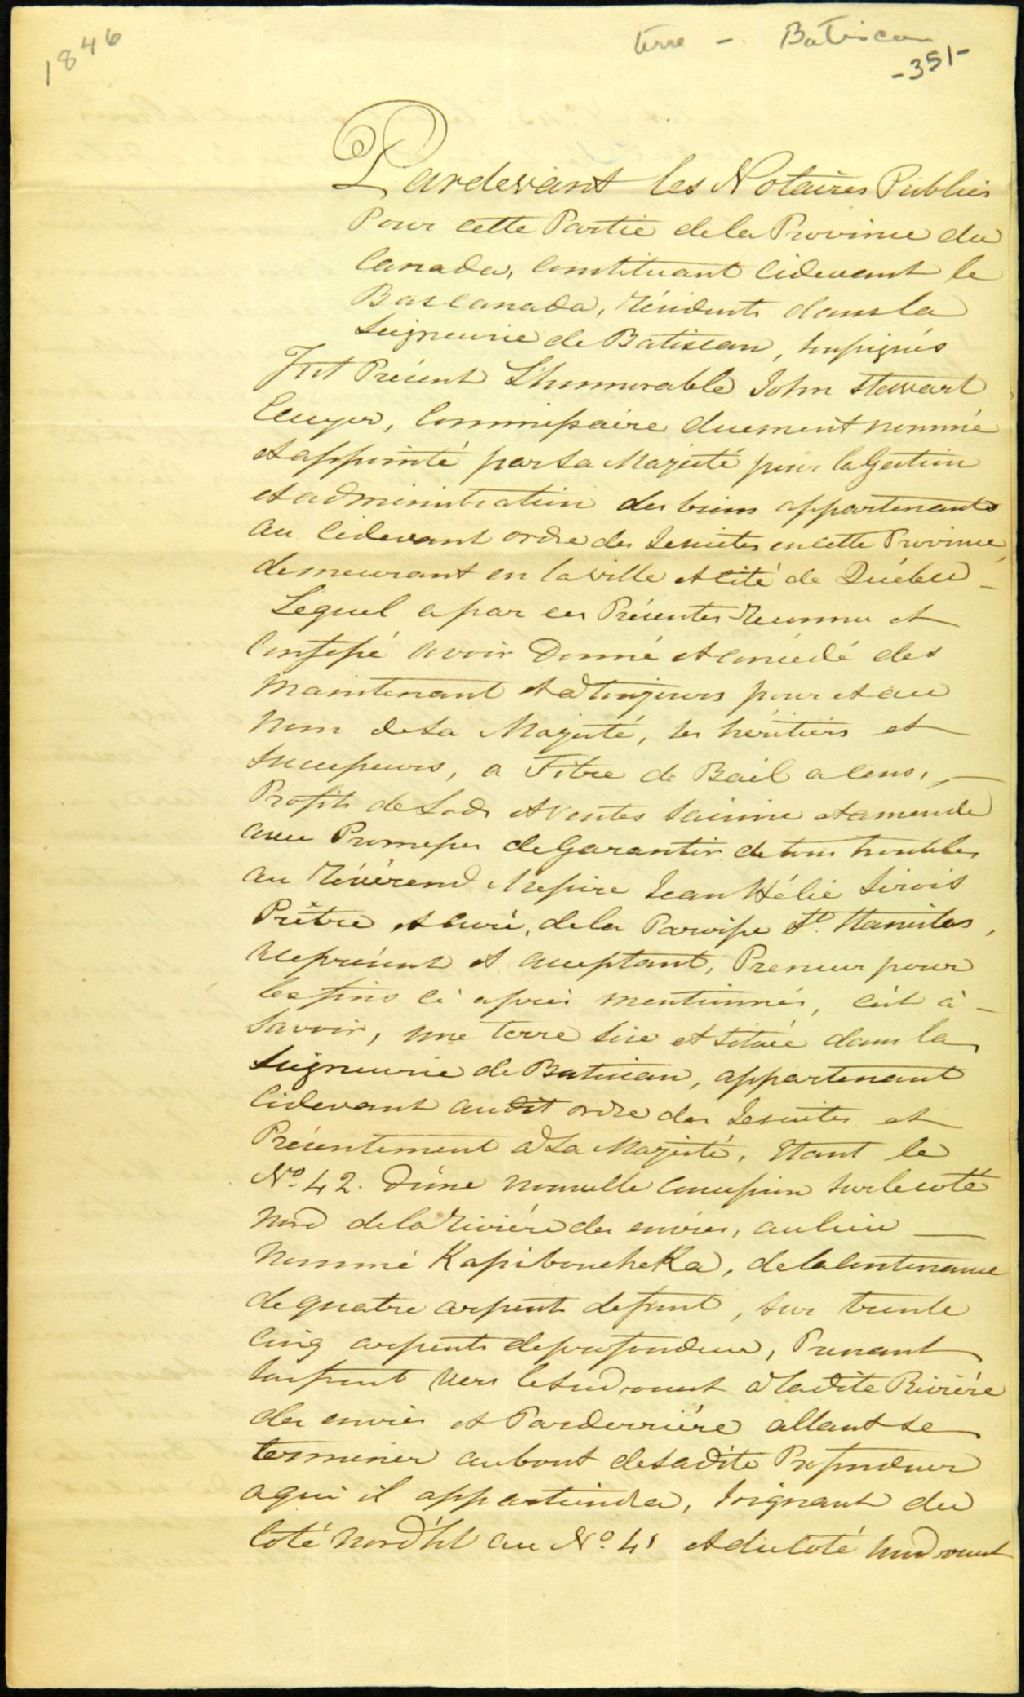 1846
terre - Batiscan
-351-
Pardevant les Notaires Publics
Pour cette Partie de la Province du
Canada, constituant cidevant le
Bas Canada, résidents dans la
Seigneurie de Batiscan, soussignés
Fut Présent L'honnorable John Stewart
Ecuyer, Commissaire duement nommé
et appointé par Sa Majesté pour la Gestion
et administration des biens appartenants
au cidevant ordre des Jesuites en cette Province
demeurant en la ville et cité de Québec
Lequel a par ces Présentes reconnu et
Confessé avoir Donné et concédé des
maintenant et a toujours pour et au
nom de Sa Majesté, ses héritiers et
Successeurs, a Titre de Bail a cens,
Profits de Lods et Ventes saisine et amende
avec Promesses de Garantir de tous troubles
au Révérend Messire Jean Hélie Sirois
Prêtre et curé, de la Paroisse St. Stanislas,
ace présent et acceptant, Preneur pour
les fins ci après mentionnés, c'est à
Savoir, une terre sise et située dans la
Seigneurie de Batiscan, appartenant
cidevant audit ordre des Jesuites et
Présentement a Sa Majesté, Etant le
No. 42. D'une nouvelle Concession sur le coté
nord de la Rivière des envies, au lieu
nommé Kapiboucheka, de la contenance
de quatre arpents de front, sur trente
cinq arpents de profondeur, Prenant
son front vers le sud ouest a ladite Rivière
des envies et Par derrière allant se
terminer au bout de sa dite Profondeur
a qui il appartiendra, Joignant du
Coté nord Est au No. 41 et du coté sud ouest